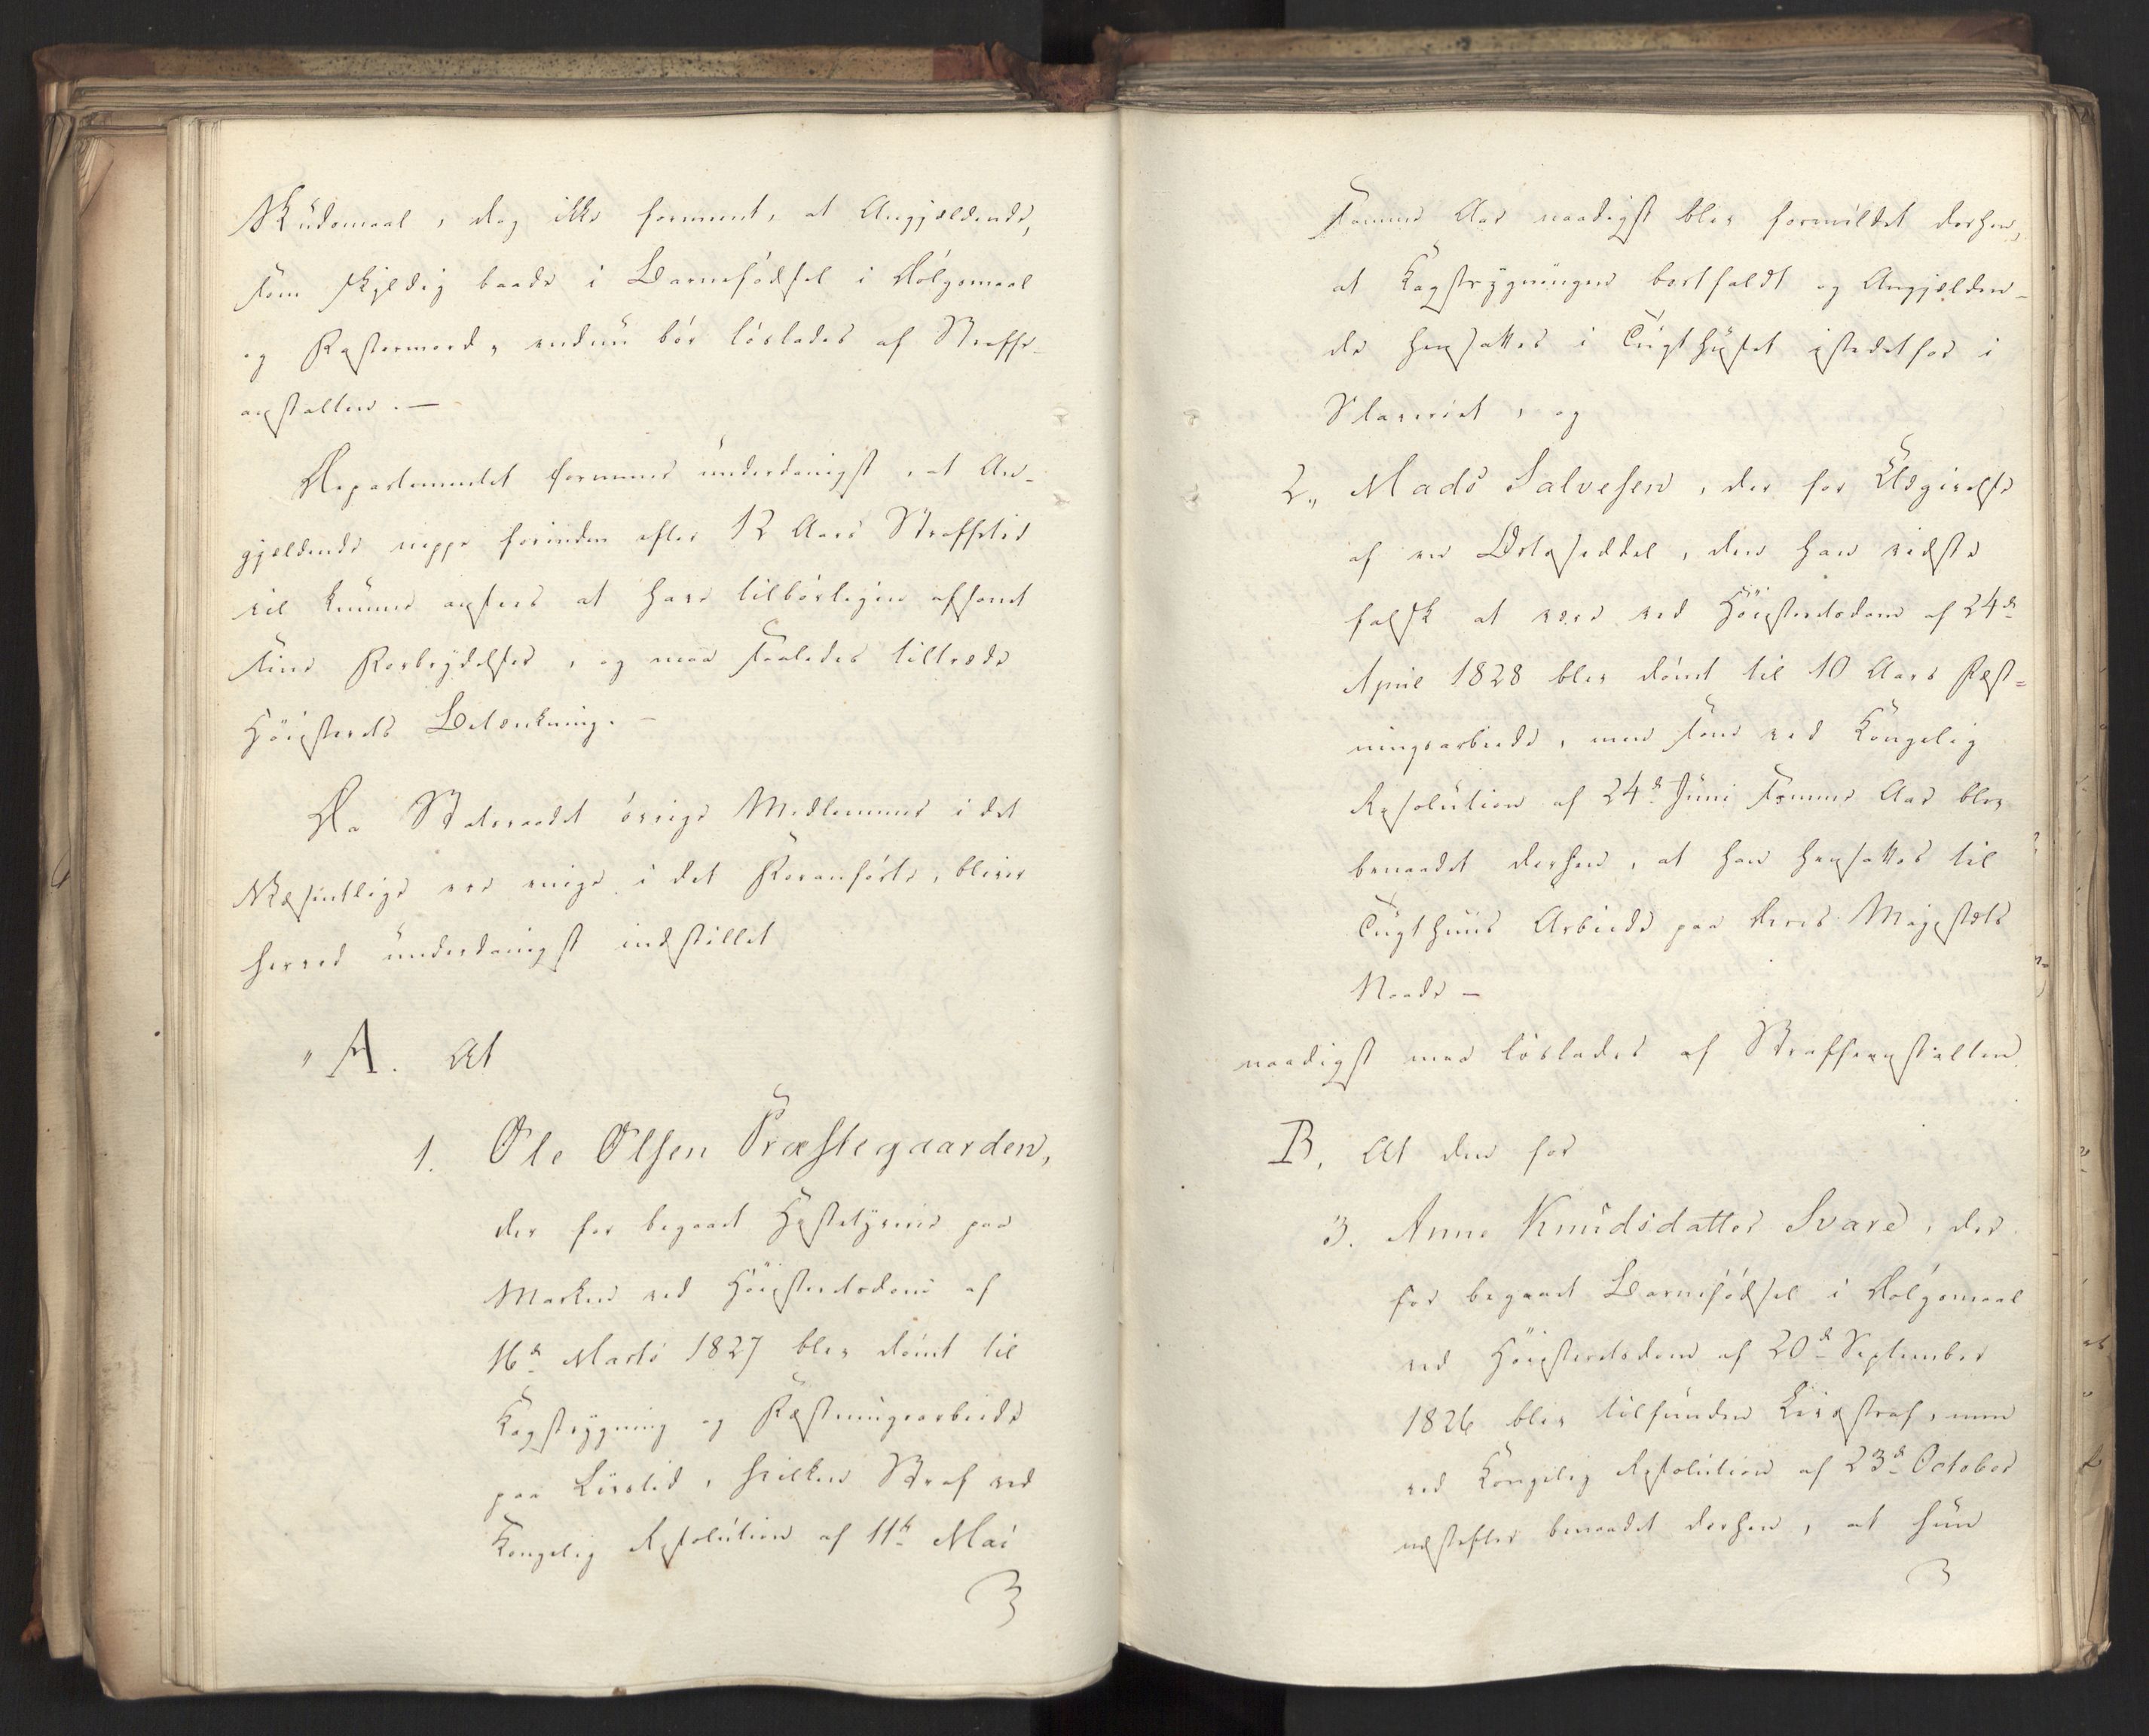 Skudsmaal, dog ikke formeent, at Angjældende,
som skyldig baade i Barnefødsel i Dølgsmaal
og Fostermord, endnu bør løslades af Straffe-
anstalten. —
Departementet formener underdanigst, at An-
gjældende neppe forinden efter 12 Aars Straffetid
vil kunne ansees at have tilbørligen afsonet
sine Forbrydelser, og maa saaledes tiltræde
Høiesterets Betænkning. —
Da Statsraadet øvrige Medlemmer i det
Væsentlige ere enige i det Foranførte, bliver
herved underdanigst indstillet
" A. At
1. Ole Olsen Præstegaarden,
der for begaaet Hestetyverie paa
Marken ved Høiesteretsdom af
16de Marts 1827 blev dømt til
Kagstrygning og Fæstningsarbeide
paa Livstid, hvilken Straf ved
Kongelig Resolution af 11te Mai
samme Aar naadigst blev formildet derhen,
at Kagstrygningen bortfaldt og Angjælden-
de hensattes i Tugthuset istedetfor i
Slaveriet, og
2., Mads Salvesen, der for Udgivelse
af en Bankseddel, den han vidste
falsk at være ved Høiesteretsdom af 24de
April 1828 blev dømt til 10 Aars Fæst-
ningsarbeide, men som ved Kongelig
Resolution af 24de Juni samme Aar blev
benaadet derhen, at han hensattes til
Tugthuus Arbeide paa Deres Majestæts
Naade —
naadigst maa løslades af Straffeanstalten.
B. At den for
3. Anne Knudsdatter Svare, der
for begaaet Barnefødsel i Dølgsmaal
ved Høiesteretsdom af 20de September
1826 blev tilfunden Livsstraf, men
ved Kongelig Resolution af 23de October
næstefter benaadet derhen, at hun